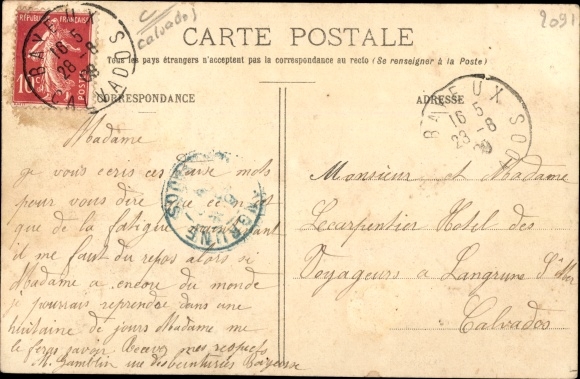 2091
Calvados)
CARTE POSTALE
Tous les pays étrangers n'acceptent pas la correspondance au recto (Se renseigner à la Poste)
RÉPUBLIQUE FRANÇAISE
10c
POSTES
BAYEUX
16 5
28 -8
08
CALVADOS
CORRESPONDANCE
ADRESSE
BAYEUX
16 5
23 -8
DOS
LANGRUNE
Madame
je vous ecris ces mots
pour vous dire que
que de la fatigue
il me faut du repos alors si
Madame a encore du monde
je pourrais reprendre dans une
huitaine de jours Madame me
le feras savoir. Recevez mes respects
M. Gamblin rue des Teinturies Bayeux
Monsieur et Madame
Lecarpentier Hotel des
Voyageurs a Langrune S/ Mer
Calvados